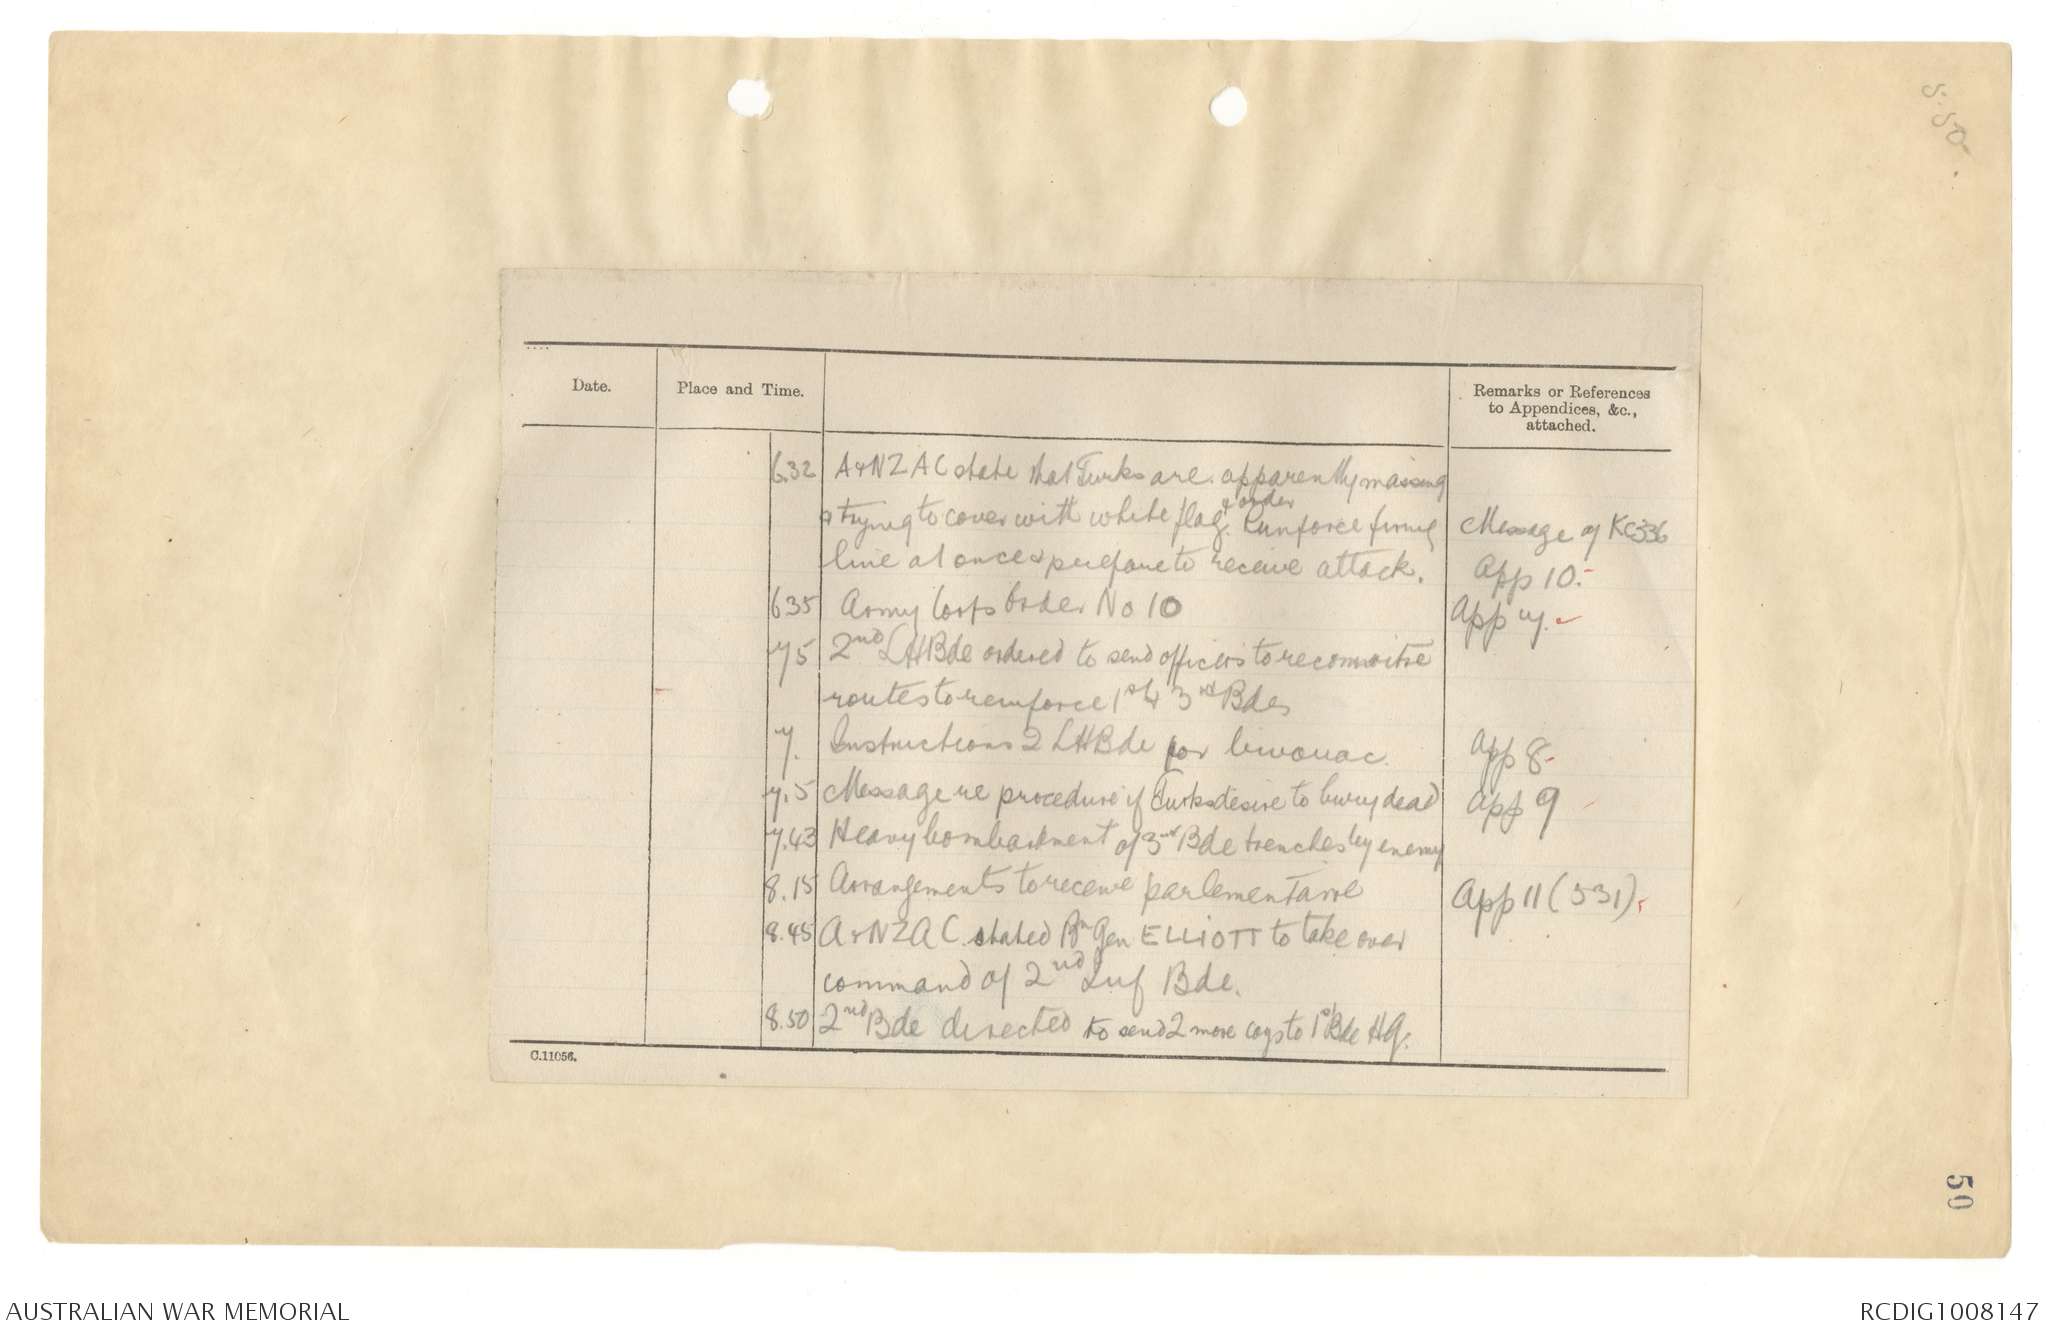 S.50.
Date.
Place and Time.
Remarks or References
to Appendices, &c.,
attached.
6.32 A & NZ A C state that Turks are apparently massing
& order
& trying to cover with white flag. Reinforce firing Message of KC336
line at once & prepare to receive attack. App 10.
635 Army Corps Order No 10 App 7.
75 2nd LHBde ordered to send officers to reconnoitre
routes to reinforce 1st & 3rd Bdes
7. Instructions 2 LHBde for bivouac. App 8
7.5 Message re procedure if Turks desire to bury dead App 9
7.43 Heavy bombardment of 3rd Bde trenches by enemy
8.15 Arrangements to receive parlementaire App 11 (531).
8.45 A & NZ A C. stated Bn Gen ELLIOTT to take over
command of 2nd Inf Bde.
8.50 2nd Bde directed to send 2 more coys to 1st Bde HQ.
C.11056.
50
AUSTRALIAN WAR MEMORIAL
RCDIG1008147